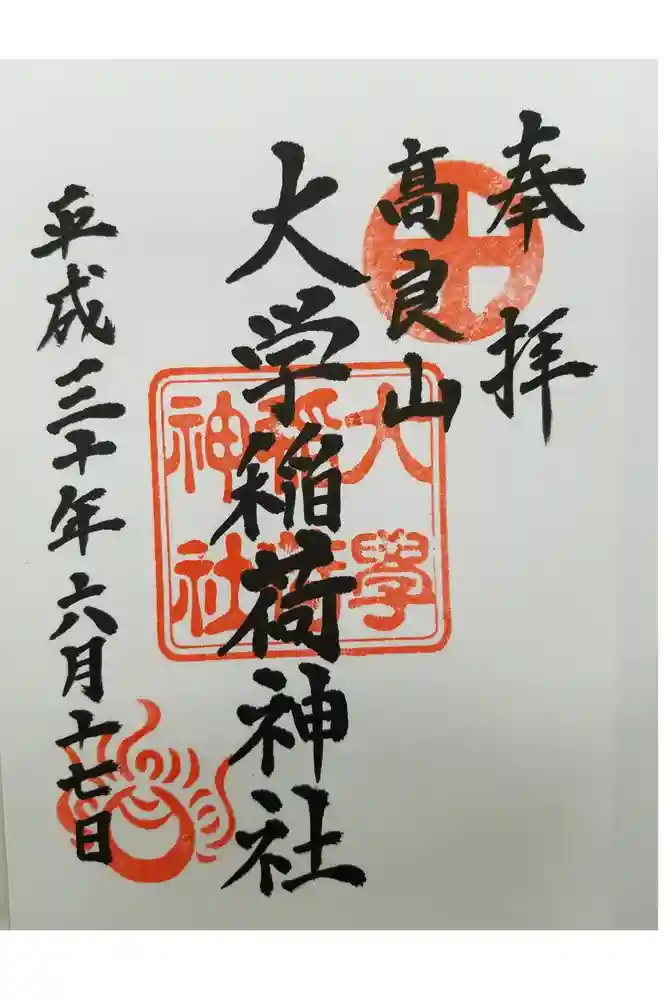 奉拝
髙良山
大学稲荷神社
平成三十年六月十七日
大學
稲荷
神社